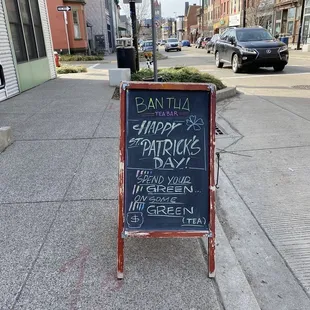 BANTHA
TEA BAR
HAPPY
ST PATRICK'S
DAY!
SPEND YOUR
GREEN...
ON SOME
GREEN
(TEA)
$